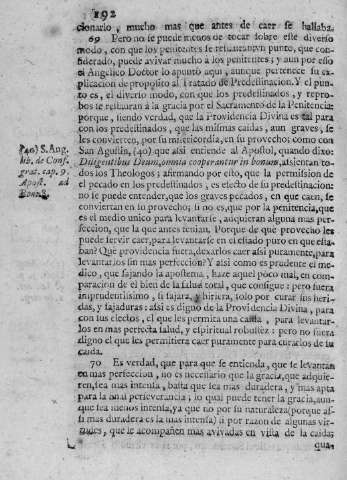 192
cionario, mucho mas que antes de caer se hallaba.
69 Pero no se puede menos de tocar sobre este diverso
modo, con que los penitentes se restauran un punto, que con-
siderado, puede avivar mucho a los penitentes; y aun por esso
el Angelico Doctor lo apuntò aqui, aunque pertenece su ex-
plicacion de proposito al Tratado de Predestinacion. Y el pun-
to es, el diverso modo, con que los predestinados, y repro-
bos se restauran à la gracia por el Sacramento de la Penitencia:
porque, siendo verdad, que la Providencia Divina es tal para
con los predestinados, que las mismas caidas, aun graves, se
les convierten, por su misericordia, en su provecho; como con
San Agustin, (40) que assi entiende al Apostol, quando dixo:
Diligentibus Deum, omnia cooperantur in bonum, assientan to-
dos los Theologos; afirmando por esto, que la permission de
el pecado en los predestinados, es efecto de su predestinacion:
no se puede entender, que los graves pecados, en que caen, se
conviertan en su provecho, si no es, que por la penitencia, que
es el medio unico para levantarse, adquieran alguna mas per-
feccion, que la que antes tenian. Porque de què provecho les
puede servir caer, para levantarse en el estado puro en que esta-
ban? Què providencia fuera, dexarlos caer assi puramente, para
levantarlos sin mas perfeccion? Y assi como es prudente el me-
dico, que sajando la apostema, hace aquel poco mal, en com-
paracion de el bien de la salud total, que consigue: pero fuera
imprudentissimo, si sajara, y hiriera, solo por curar sus heri-
das, y sajaduras: assi es digno de la Providencia Divina, para
con sus electos, el que les permita una caida, para levantar-
los en mas perfecta salud, y espiritual robustèz: pero no fuera
digno el que les permitiera caer puramente para curarlos de su
caida.
70 Es verdad, que para que se entienda, que se levantan
en mas perfeccion, no es necessario que la gracia, que adquie-
ren, sea mas intensa, basta que sea mas duradera; y mas apta
para la final perseverancia; lo qual puede tener la gracia, aun-
que sea menos intensa, ya que no por su naturaleza (porque as-
si mas duradera es la mas intensa) ù por razon de algunas vir-
tudes, que le acompañen mas avivadas en vista de la caida:
qua-
(40) S. Aug.
lib. de Corr.
grat. cap. 9.
Apost. ad
Rom. 8.